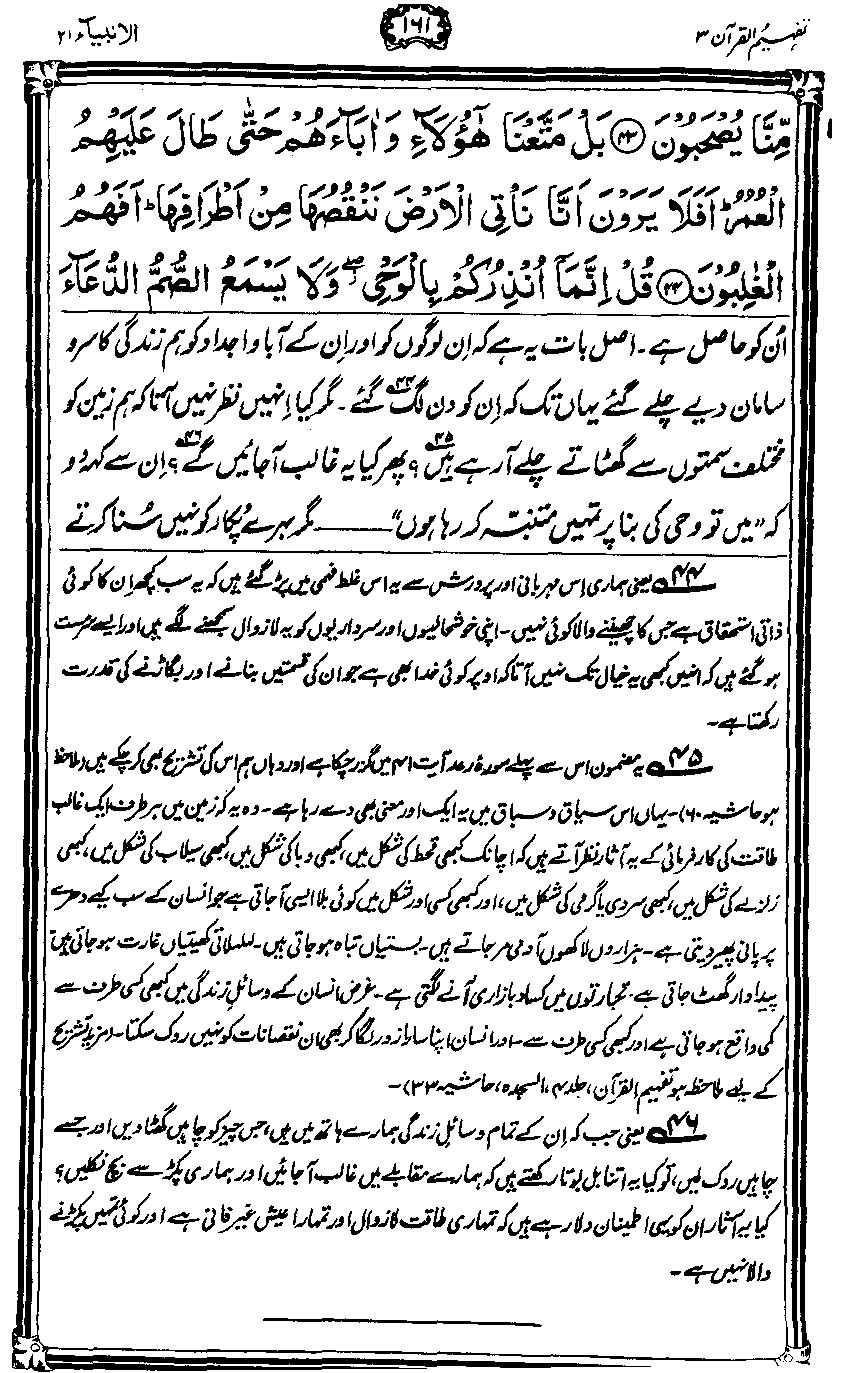 تفہیم القرآن ۳
۱۶۱
الانبیاء ۲۱
مِّنَّا يُصْحَبُوْنَ ﴿۴۳﴾ بَلْ مَتَّعْنَا هٰٓؤُلَآءِ وَ اٰبَآءَهُمْ حَتّٰى طَالَ عَلَيْهِمُ
الْعُمُرُ ؕ اَفَلَا يَرَوْنَ اَنَّا نَاْتِی الْاَرْضَ نَنْقُصُهَا مِنْ اَطْرَافِهَا ؕ اَفَهُمُ
الْغٰلِبُوْنَ ﴿۴۴﴾ قُلْ اِنَّمَاۤ اُنْذِرُكُمْ بِالْوَحْیِ ۖ وَلَا يَسْمَعُ الصُّمُّ الدُّعَآءَ
اُن کو حاصل ہے۔ اصل بات یہ ہے کہ اِن لوگوں کو اور اِن کے آباو اجداد کو ہم زندگی کا سرو
سامان دیے چلے گئے یہاں تک کہ اِن کو دن لگ گئے۴۴۔ مگر کیا اِنہیں نظر نہیں آتا کہ ہم زمین کو
مختلف سمتوں سے گھٹاتے چلے آ رہے ہیں۴۵؟ پھر کیا یہ غالب آجائیں گے۴۶؟ اِن سے کہہ دو
کہ ”میں تو وحی کی بنا پر تمہیں متنبّہ کر رہا ہوں“ ——— مگر بہرے پُکار کو نہیں سُنا کرتے
۴۴ یعنی ہماری اِس مہربانی اور پرورش سے یہ اس غلط فہمی میں پڑ گئے ہیں کہ یہ سب کچھ ان کا کوئی
ذاتی استحقاق ہے جس کا چھیننے والا کوئی نہیں۔ اپنی خوشحالیوں اور سرداریوں کو یہ لازوال سمجھنے لگے ہیں اور ایسے سرمست
ہو گئے ہیں کہ انہیں کبھی یہ خیال تک نہیں آتا کہ اوپر کوئی خدا بھی ہے جو ان کی قسمتیں بنانے اور بگاڑنے کی قدرت
رکھتا ہے۔
۴۵ یہ مضمون اس سے پہلے سورۂ رعد آیت ۴۱ میں گذر چکا ہے اور وہاں ہم اس کی تشریح بھی کر چکے ہیں (ملاحظہ
ہو حاشیہ ۶۰)۔ یہاں اس سیاق و سباق میں یہ ایک اور معنی بھی دے رہا ہے۔ وہ یہ کہ زمین میں ہر طرف ایک غالب
طاقت کی کارفرمائی کے یہ آثار نظر آتے ہیں کہ اچانک کبھی قحط کی شکل میں، کبھی وبا کی شکل میں، کبھی سیلاب کی شکل میں، کبھی
زلزلے کی شکل میں، کبھی سردی یا گرمی کی شکل میں، اور کبھی کسی اور شکل میں کوئی بلا ایسی آجاتی ہے جو انسان کے سب کیے دھرے
پر پانی پھیر دیتی ہے۔ ہزاروں لاکھوں آدمی مر جاتے ہیں۔ بستیاں تباہ ہو جاتی ہیں۔ لہلہاتی کھیتیاں غارت ہو جاتی ہیں۔
پیداوار گھٹ جاتی ہے۔ تجارتوں میں کساد بازاری آنے لگتی ہے۔ غرض انسان کے وسائل زندگی میں کبھی کسی طرف سے
کمی واقع ہو جاتی ہے اور کبھی کسی طرف سے۔ اور انسان اپنا سارا زور لگا کر بھی ان نقصانات کو نہیں روک سکتا۔ (مزید تشریح
کے لیے ملاحظہ ہو تفہیم القرآن، جلد ۴، السجدہ، حاشیہ ۳۳)۔
۴۶ یعنی جب کہ اِن کے تمام وسائل زندگی ہمارے ہاتھ میں ہیں، جس چیز کو چاہیں گھٹا دیں اور جسے
چاہیں روک لیں، تو کیا یہ اتنا بل بوتا رکھتے ہیں کہ ہمارے مقابلے میں غالب آجائیں اور ہماری پکڑ سے بچ نکلیں؟
کیا یہ آثار ان کو یہی اطمینان دلا رہے ہیں کہ تمہاری طاقت لازوال اور تمہارا عیش غیر فانی ہے اور کوئی تمہیں پکڑنے
والا نہیں ہے۔